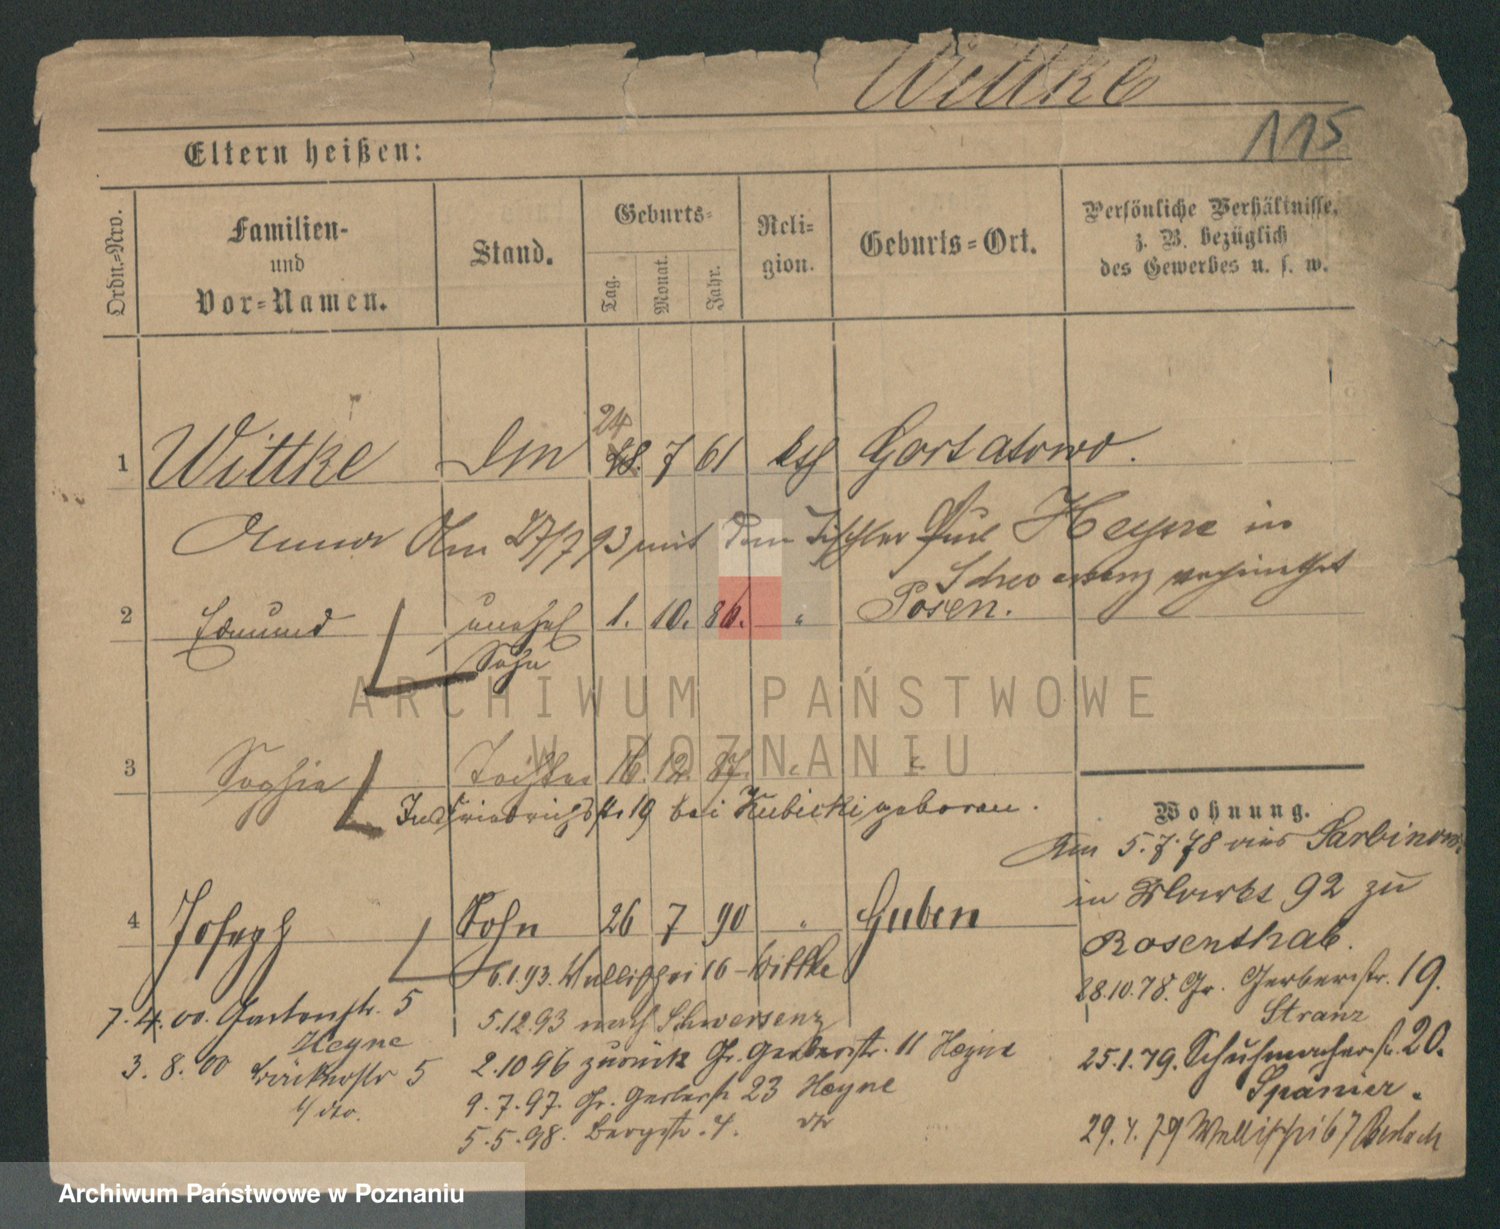 Wittke
115
Eltern heißen:
Ordn.-Nro.
Familien-
und
Vor-Namen.
Stand.
Geburts-
Tag.
Monat.
Jahr.
Reli-
gion.
Geburts-Ort.
Persönliche Verhältnisse,
z. B. bezüglich
des Gewerbes u. s. w.
24
1 Wittke 18. 7 61 Gortatowo.
Anna Am 27/7 93 mit dem Tischler Paul Heyne in
Schwersenz verheirathet
2 Edmund unehel 1. 10. 86. " Posen.
Sohn
ARCHIWUM PAŃSTWOWE
W POZNANIU
3 Sophia Tochter 16. 12. 87. " "
Friedrichstr. 19 bei Kubicki geboren.
Wohnung.
Am 5.7.78 aus Sarbinowo
in 92 zu
Rosenthal.
4 Joseph Sohn 26 7 90 " Guben
6.1.93. Wallischei 16 - Wittke
28.10.78. Gr. Gerberstr. 19.
Stranz
7.4.00. Gartenstr. 5
Heyne
5.12.93 nach Schwersenz
25.1.79. Schuhmacherstr. 20.
Spanier.
3.8.00 Bäckerstr 5
dto.
2.10 96 zurück Gr. Gerberstr. 11 Heyne
9.7.97. Gr. Gerberstr 23 Heyne
5.5.98. Bergstr. 4. dto
29.4.79 Wallischei 67
Archiwum Państwowe w Poznaniu